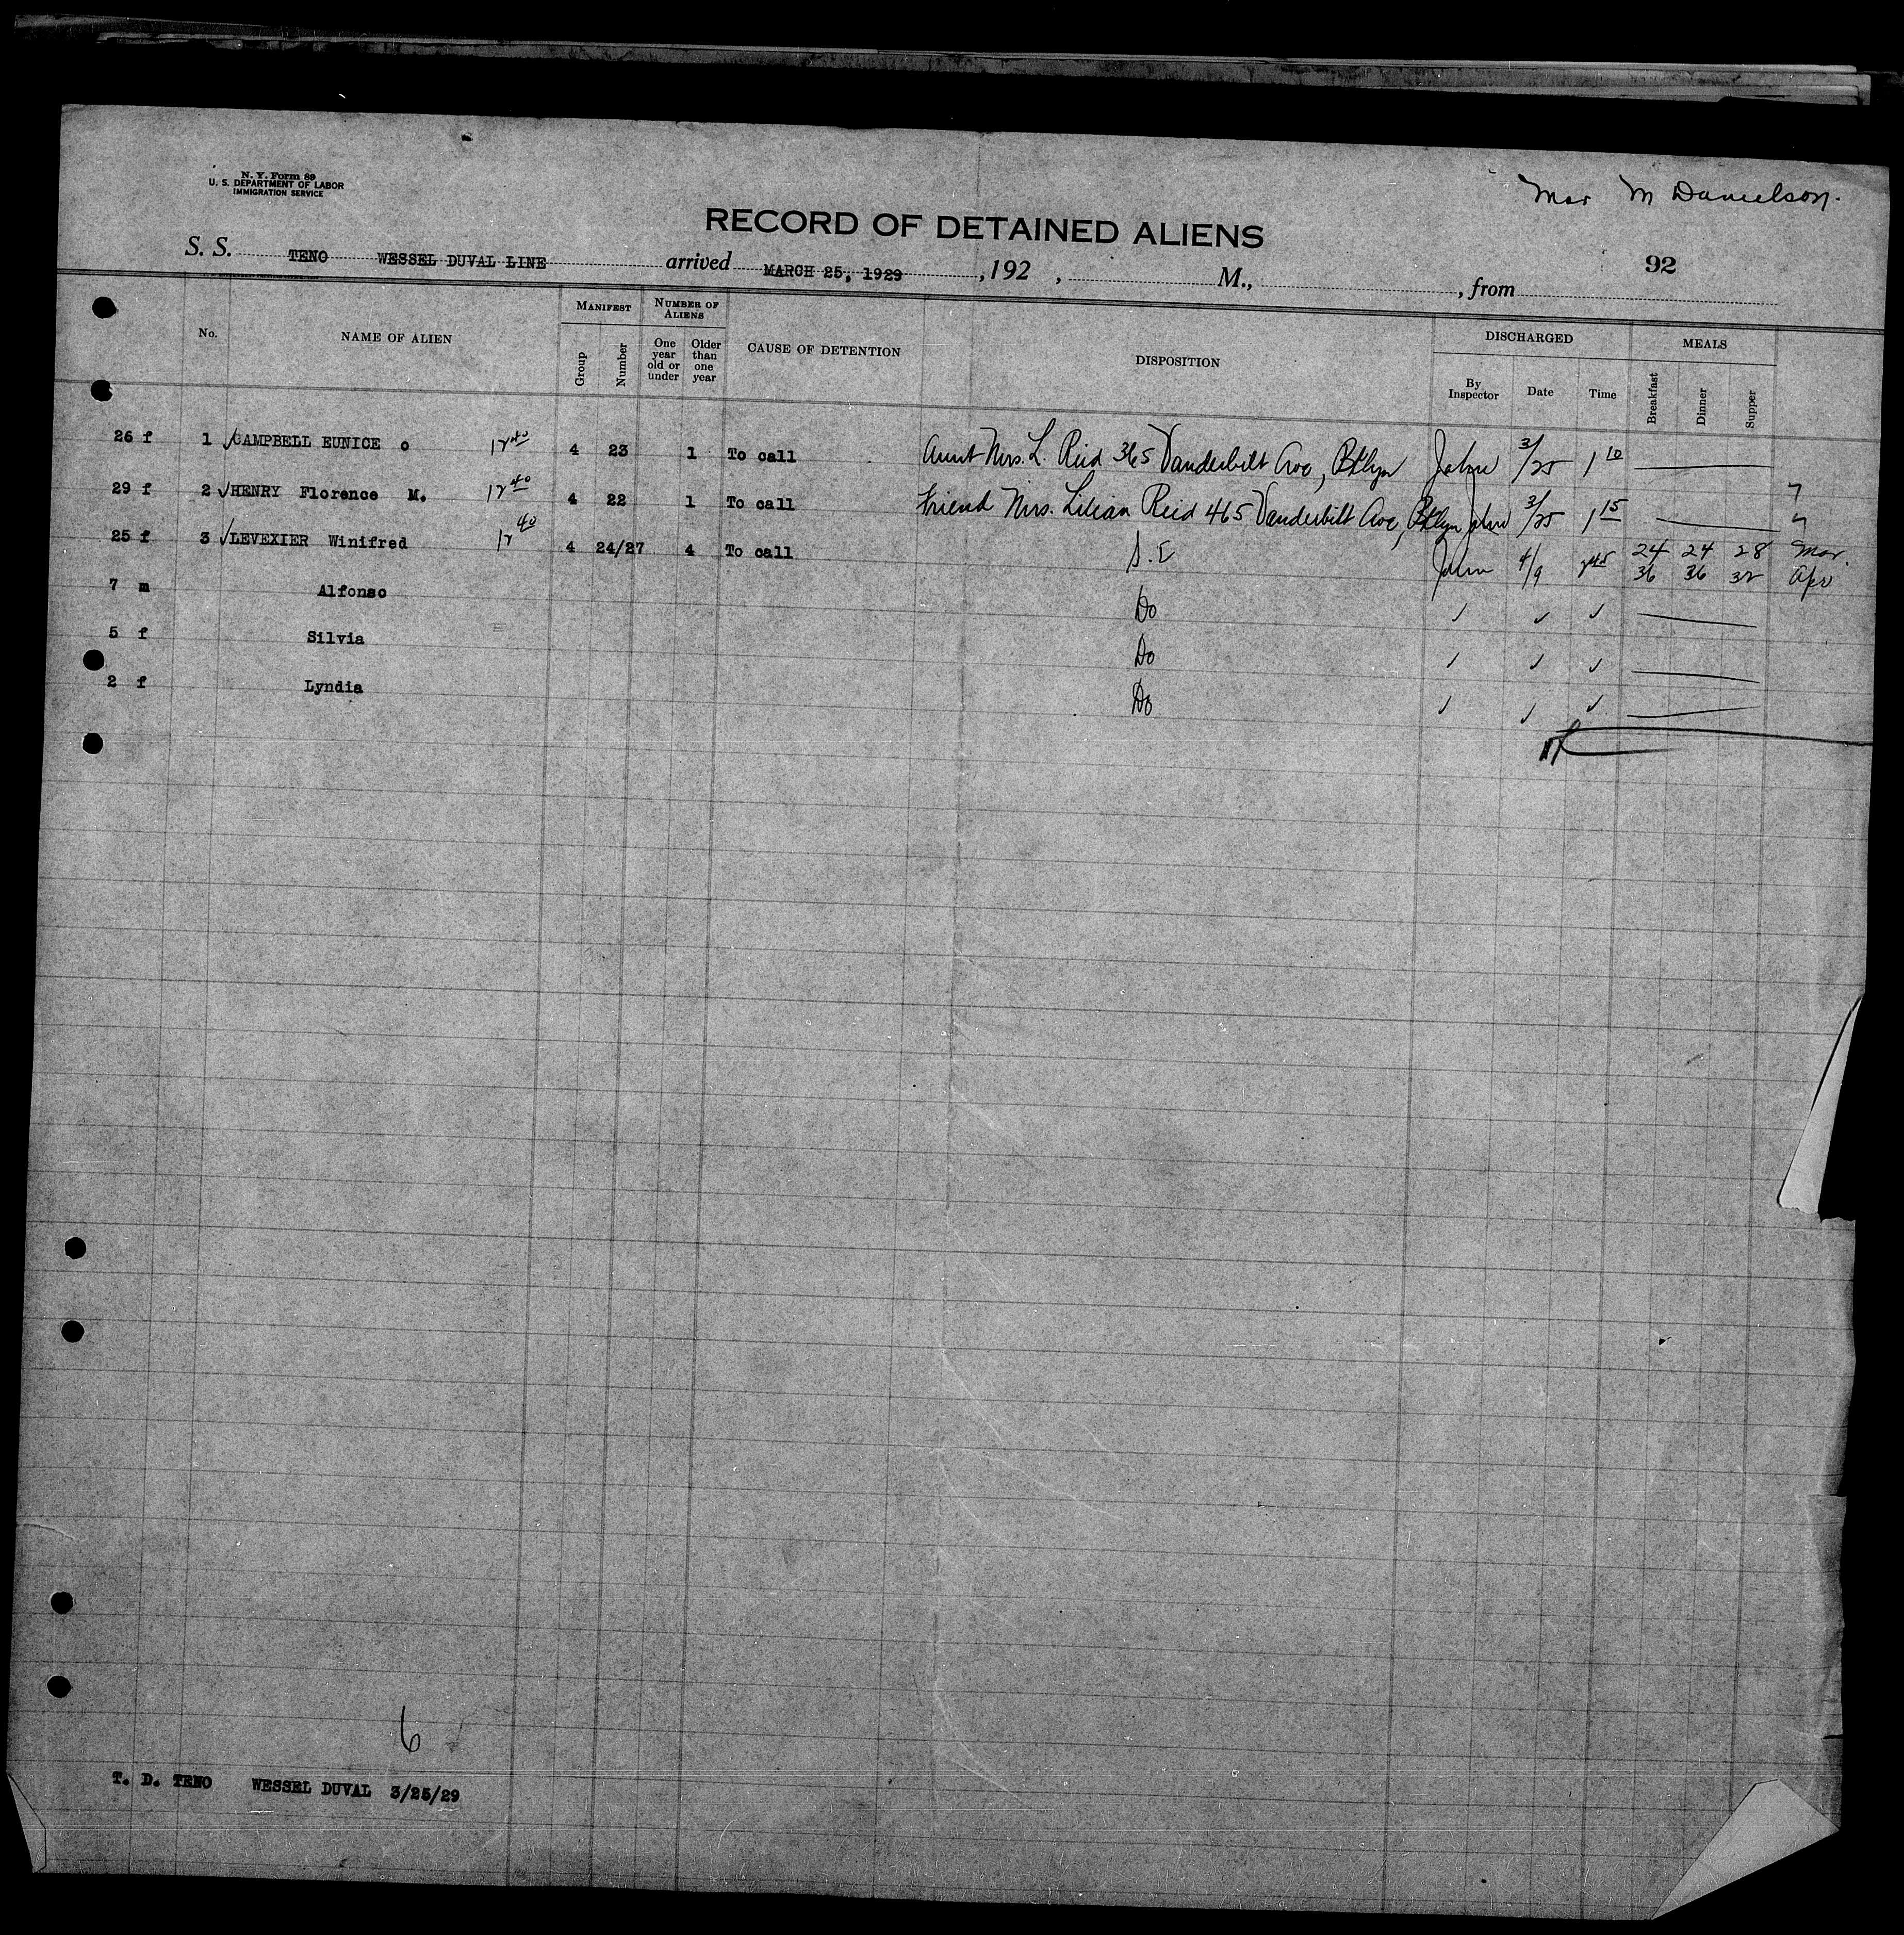 N. Y. Form 89
U. S. DEPARTMENT OF LABOR
IMMIGRATION SERVICE
M Danielson.
RECORD OF DETAINED ALIENS
S. S. TENO WESSEL DUVAL LINE arrived MARCH 25, 1929 , 192 , M., , from
92
No. NAME OF ALIEN MANIFEST Group Number NUMBER OF ALIENS One year old or under Older than one year CAUSE OF DETENTION DISPOSITION DISCHARGED By Inspector Date Time MEALS Breakfast Dinner Supper
26 f 1 CAMPBELL EUNICE o 12 40 4 23 1 To call Aunt Mrs. L. Reid 365 Vanderbilt Ave, Bklyn John 3/25 1 10
29 f 2 HENRY Florence M. 12 40 4 22 1 To call Friend Mrs. Lilian Reid 465 Vanderbilt Ave, Bklyn John 3/25 1 15
25 f 3 LEVEXIER Winifred 12 40 4 24/27 4 To call S. I John 4/9 24 24 28 Mar
36 36 32 Apr
7 m Alfonso Do
5 f Silvia Do
2 f Lyndia Do
6
T. D. TENO WESSEL DUVAL 3/25/29